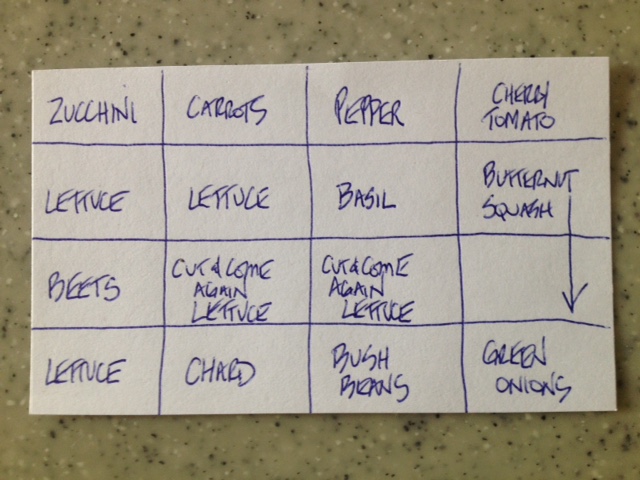 ZUCCHINI
CARROTS
PEPPER
CHERRY
TOMATO
LETTUCE
LETTUCE
BASIL
BUTTERNUT
SQUASH
BEETS
CUT & COME
AGAIN
LETTUCE
CUT & COME
AGAIN
LETTUCE
LETTUCE
CHARD
BUSH
BEANS
GREEN
ONIONS